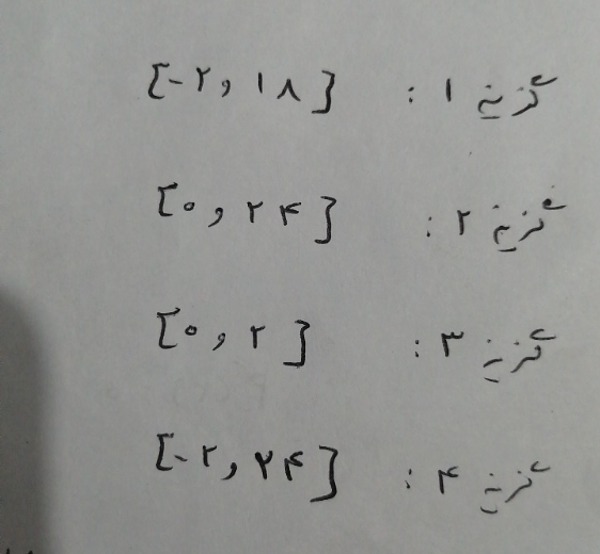 گزینه ۱ : [-۲ , ۱۸]
گزینه ۲ : [۰ , ۲۴]
گزینه ۳ : [۰ , ۲]
گزینه ۴ : [-۲ , ۲۴]